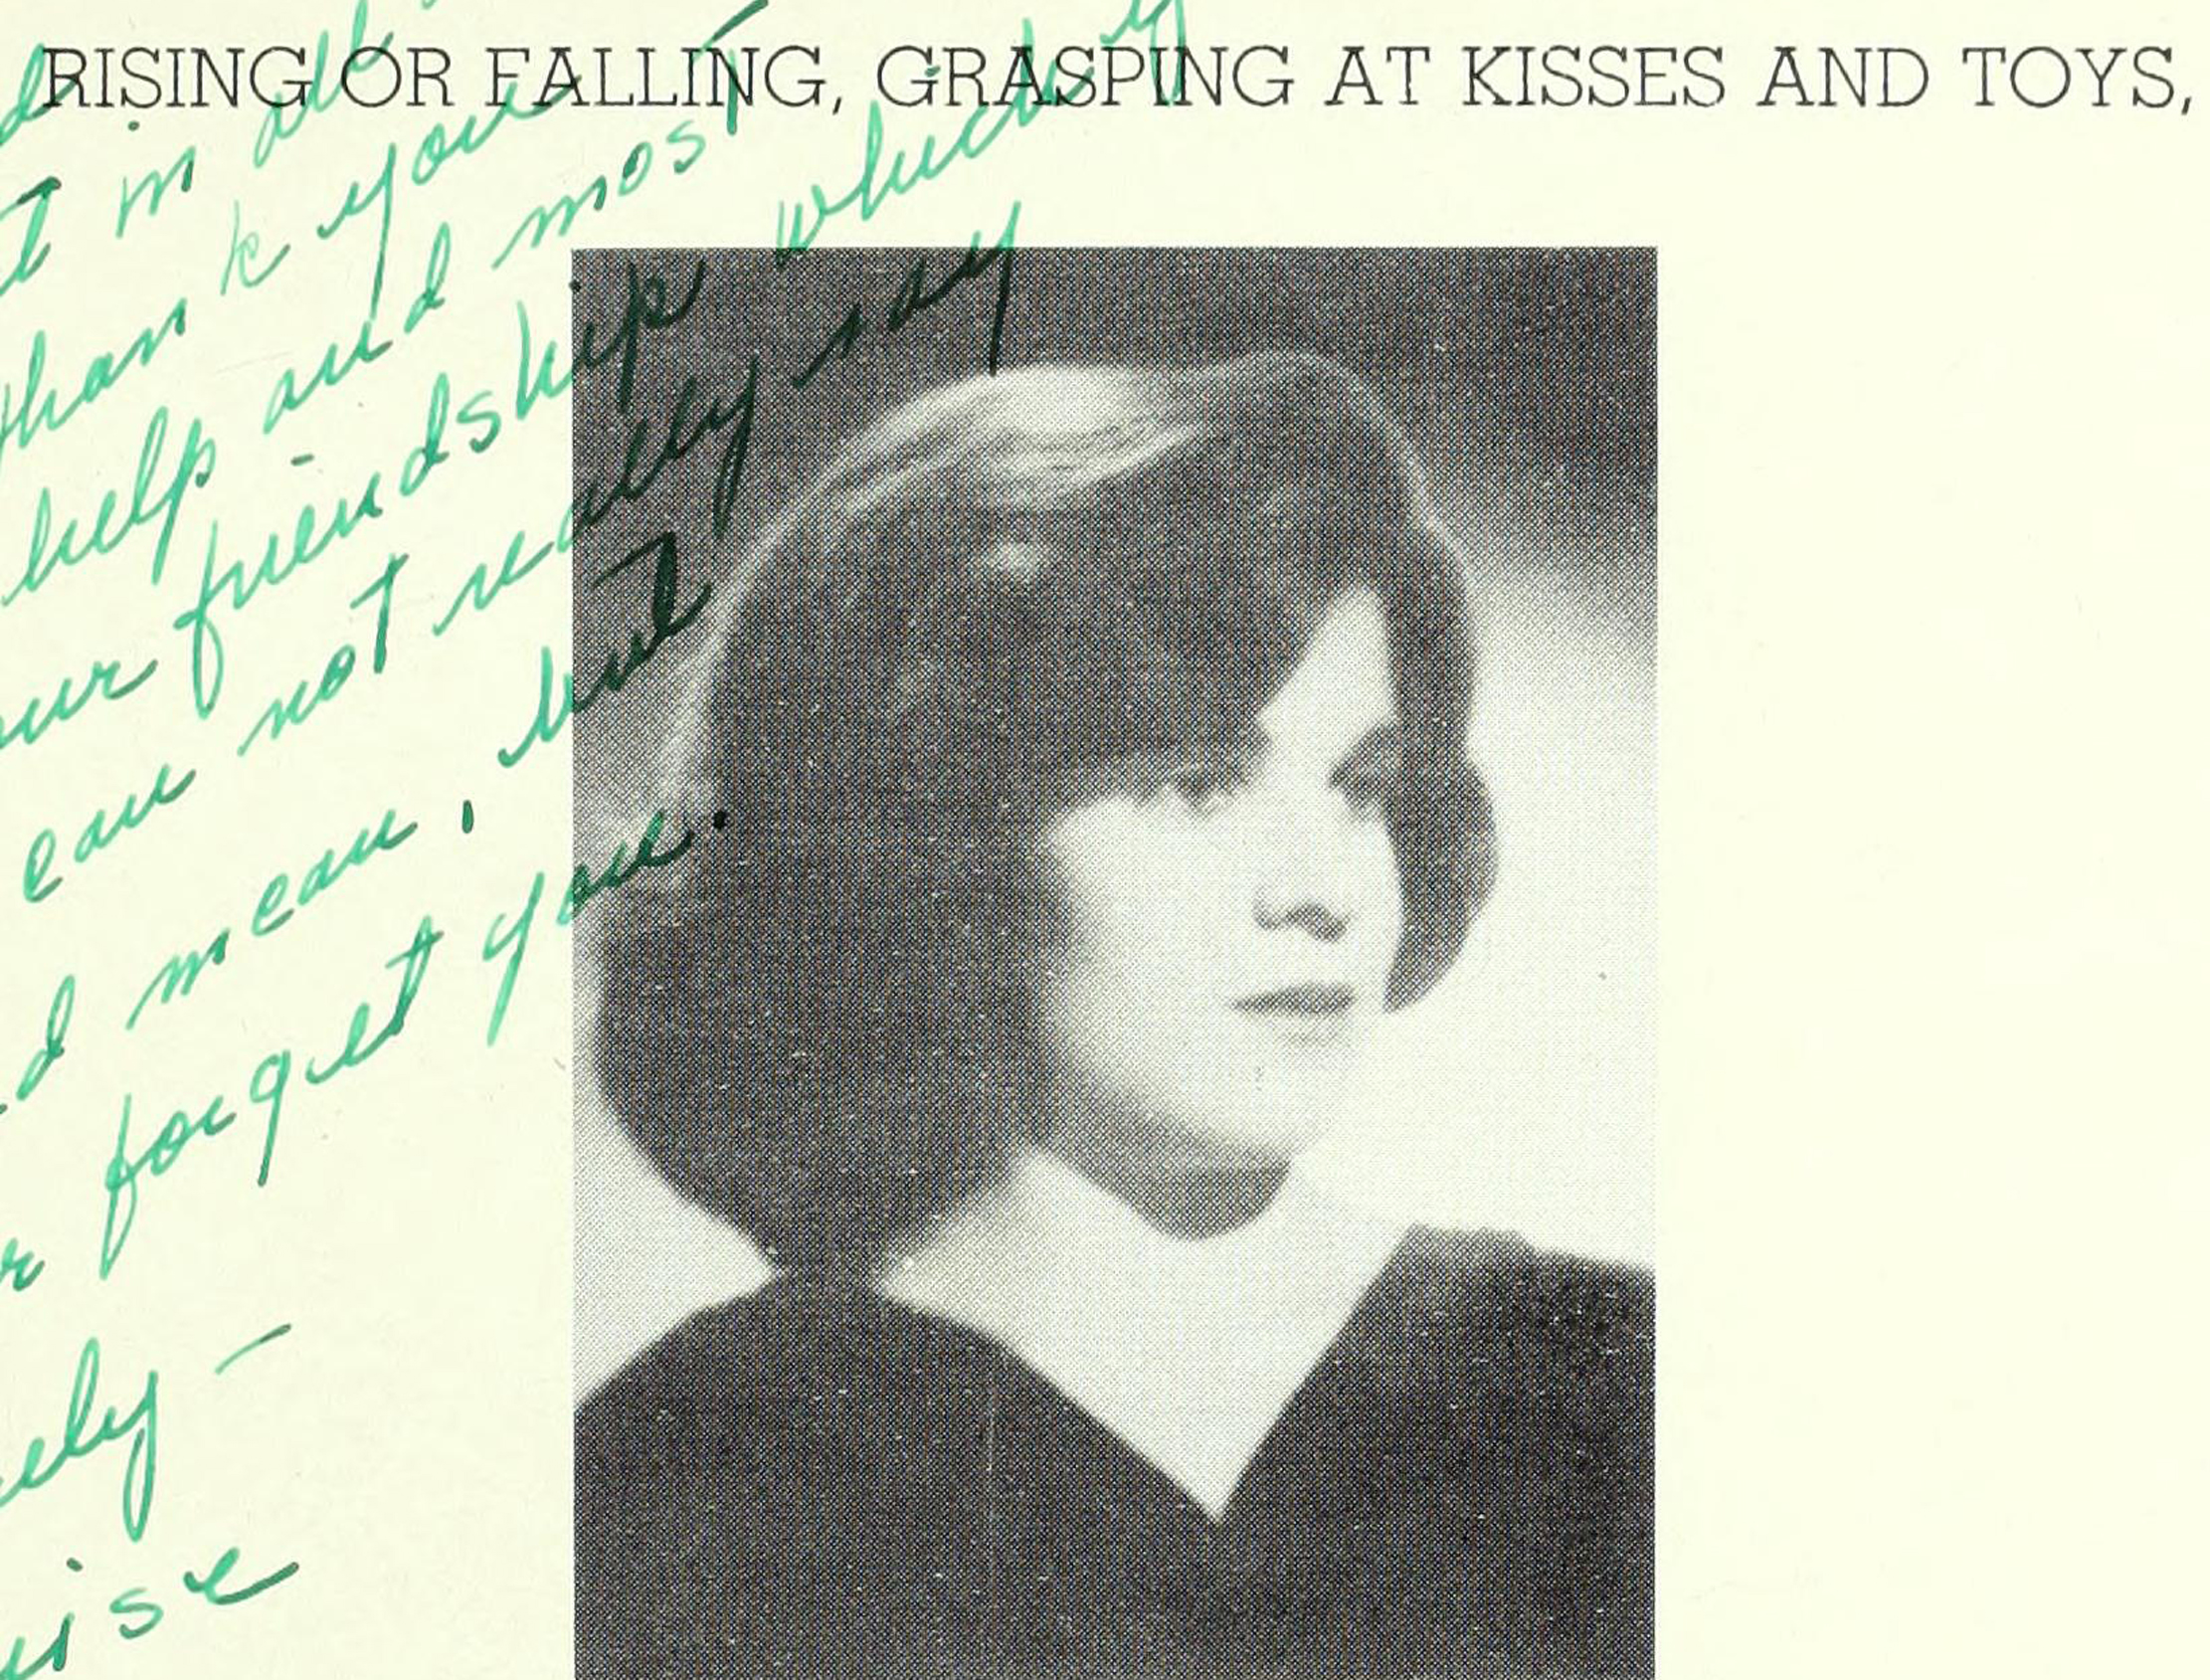 RISING OR FALLING, GRASPING AT KISSES AND TOYS,
in all
you
help and most
friendship which
can not really say
mean, but
forget you.